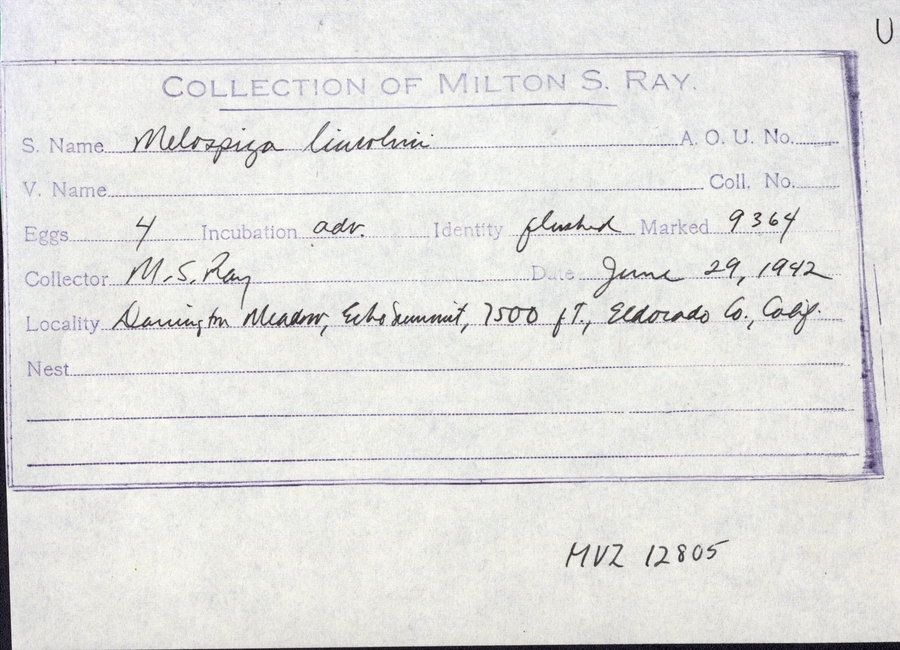 U
COLLECTION OF MILTON S. RAY.
S. Name Melospiza lincolnii A. O. U. No.
V. Name Coll. No.
Eggs 4 Incubation adv. Identity flushed Marked 9364
Collector M. S. Ray Date June 29, 1942
Locality Darrington Meadow, Echo Summit, 7500 fT., Eldorado Co., Calif.
Nest
MVZ 12805